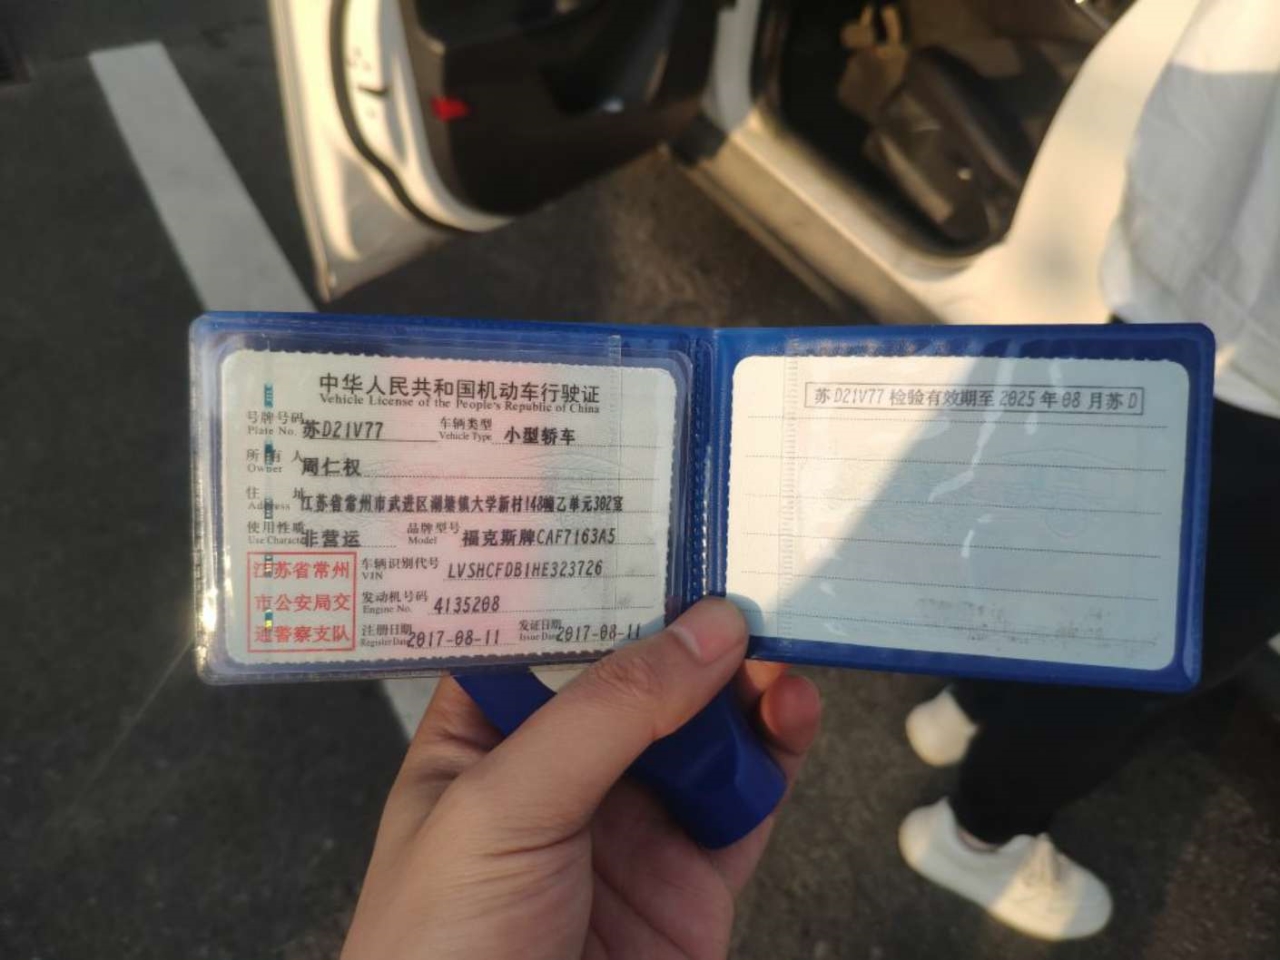 中华人民共和国机动车行驶证
Vehicle License of the People's Republic of China
号牌号码 苏D21V77 车辆类型 小型轿车
Plate No. Vehicle Type
所有人 周仁权
Owner
住址 江苏省常州市武进区湖塘镇大学新村148幢乙单元302室
Address
使用性质 非营运 品牌型号 福克斯牌CAF7163A5
Use Character Model
江苏省常州 车辆识别代号 LVSHCFDB1HE323726
VIN
市公安局交 发动机号码 4135208
Engine No.
通警察支队 注册日期 2017-08-11 发证日期 2017-08-11
Register Date Issue Date
苏D21V77 检验有效期至 2025 年 08 月苏D